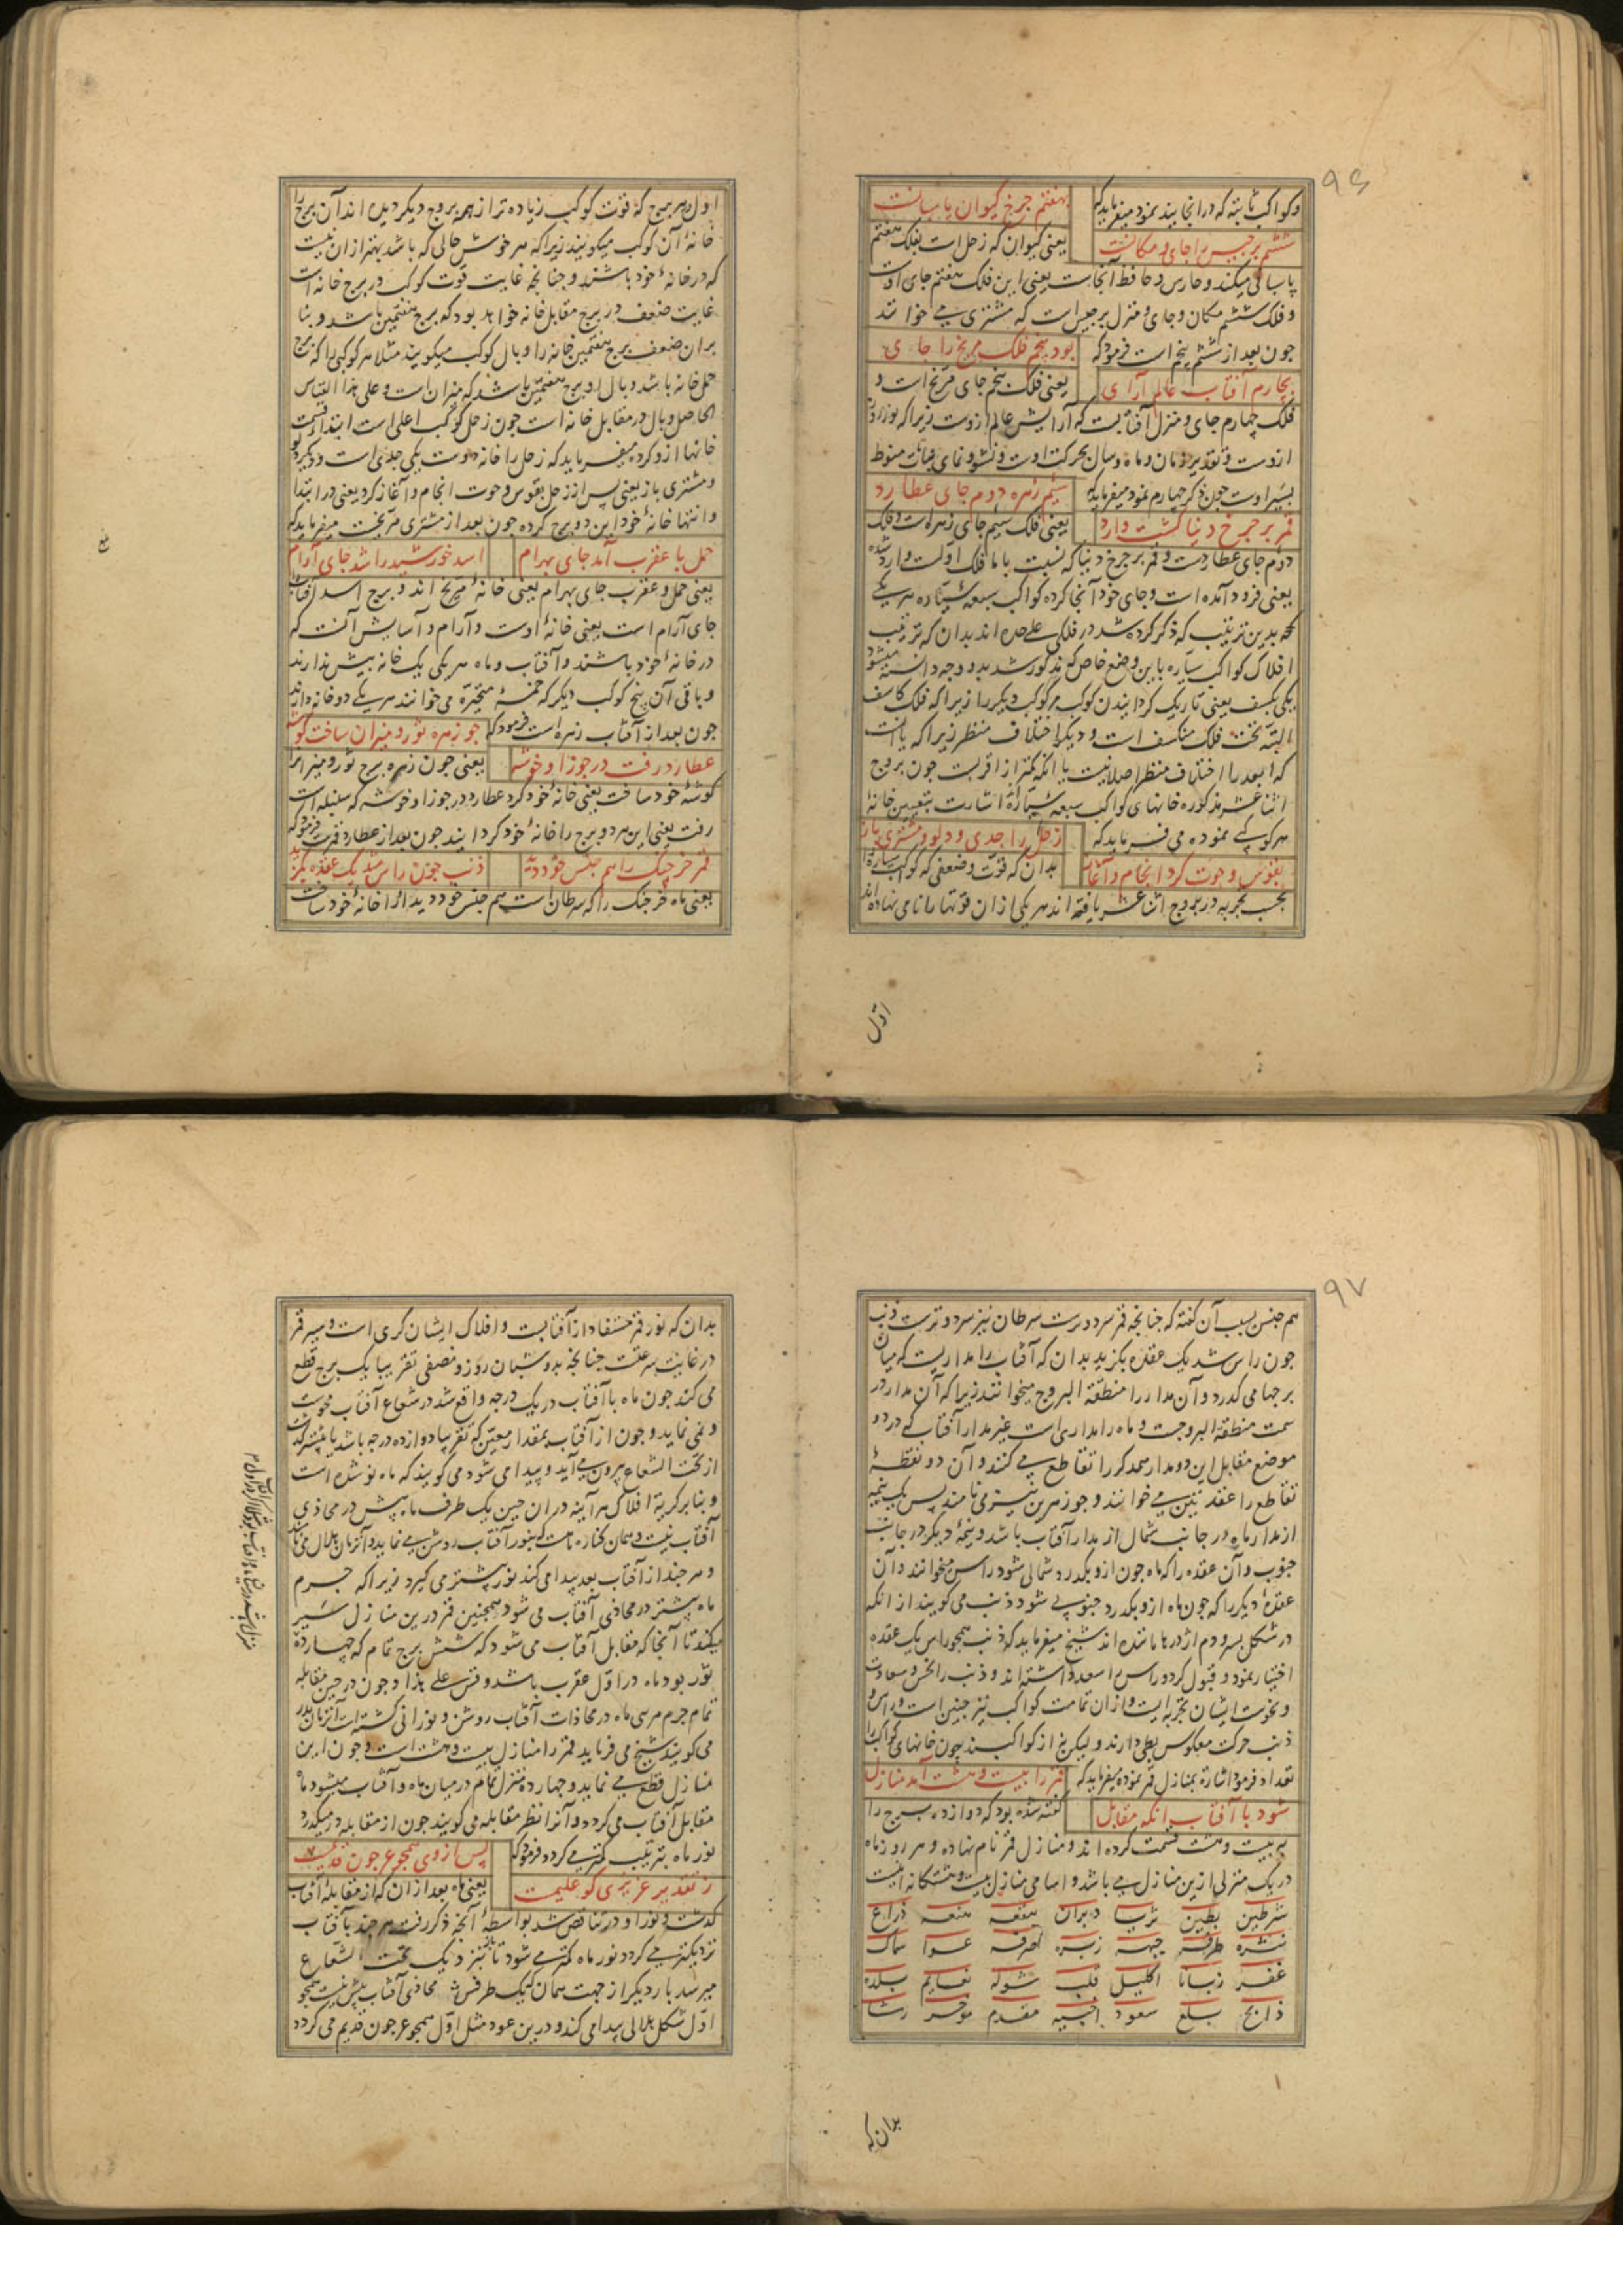 ۹۶
وکواکب ثابته که در انجا بیند نمود میفرماید که
بهفتم چرخ کیوان پاسبانست
ششم برجیس را جای و مکانست
یعنی کیوان که زحل است بفلک هفتم
پاسبانی میکند و حارس و حافظ آنجاست یعنی این فلک هفتم جای اوست
و فلک ششم مکان و جای و منزل برجیس است که مشتری می خوانند
چون بعد از ششم پنجم است فرمود که
بود پنجم فلک مریخ را جای
بچارم آفتاب عالم آرای
یعنی فلک پنجم جای مریخ است و
فلک چهارم جای و منزل آفتابست که آرایش عالم ازوست زیرا که نور روز
ازوست و تقدیر زمان و ماه و سال بحرکت اوست و نشو و نمای نباتات منوط
بسیر اوست چون ذکر چهارم نمود میفرماید که
سیم زهره دوم جای عطارد
قمر بر چرخ دنیا گشت وارد
یعنی فلک سیم جای زهره است و فلک
دوم جای عطاردست و قمر بر چرخ دنیا که نسبت با ما فلک اولست وارد شده
یعنی فرود آمده است و جای خود آنجا کرده کواکب سبعه سیاره هر یکی
بدین ترتیب که ذکر کرده شد در فلکی علی حده اند بدان که ترتیب
افلاک کواکب سیاره باین وضع خاص که مذکور شد بدو وجه دانسته میشود
یکی بکسف یعنی تاریک گردانیدن کوکب مر کوکب دیگر را زیرا که فلک کاسف
البته تحت فلک منکسف است و دیگر اختلاف منظر زیرا که یا آنست
که ابعد را اختلاف منظر اصلا نیست یا آنکه کمتر از اقربست چون بروج
اثنا عشر مذکوره خانهای کواکب سبعه سیاره اشارت بتعیین خانهٔ
هر کوکبی نموده می فرماید که
زحل را جدی و دلو و مشتری باز
بقوس و حوت کرد انجام و آغاز
بدان که قوت و ضعفی که کواکب سیاره را
بحسب تجربه در بروج اثنا عشر یافته اند هر یکی از ان قوتها را نامی نهاده اند
اول
اول هر برج که قوت کوکب زیاده تر از همه بروج دیگر دیده اند آن برج را
خانهٔ آن کوکب میگویند زیرا که هر خوش حالی که باشد بهتر از ان نیست
که در خانهٔ خود باشند و چنانچه غایت قوت کوکب در برج خانه است
غایت ضعف در برج مقابل خانه خواهد بود که برج هفتمین باشد و بنا
بر ان ضعف برج هفتمین خانه را وبال کوکب میگویند مثلا هر کوکبی را که برج
حمل خانه باشد وبال او برج هفتمین باشد که میزان است و علی هذا القیاس
الحاصل وبال در مقابل خانه است چون زحل کوکب اعلی است ابتدا قسمت
خانها ازو کرده میفرماید که زحل را خانه دوست یکی جدی است و دیگر دلو
و مشتری باز یعنی پس از زحل بقوس و حوت انجام و آغاز کرد یعنی در ابتدا
و انتها خانهٔ خود این دو برج کرده چون بعد از مشتری مریخست میفرماید که
حمل با عقرب آمد جای بهرام
اسد خورشید را شد جای آرام
یعنی حمل و عقرب جای بهرام یعنی خانهٔ مریخ اند و برج اسد آفتاب
جای آرام است یعنی خانهٔ اوست و آرام و آسایش آنست که
در خانهٔ خود باشند و آفتاب و ماه هر یکی یک خانه بیش ندارند
و باقی آن پنج کوکب دیگر که خمسهٔ متحیره می خوانند هر یکی دو خانه دارند
چون بعد از آفتاب زهره است فرمود که
چو زهره ثور و میزان ساخت گوشه
عطارد رفت در جوزا و خوشه
یعنی چون زهره برج ثور و میزان را
گوشهٔ خود ساخت یعنی خانهٔ خود کرد عطارد در جوزا و خوشه که سنبله است
رفت یعنی این هر دو برج را خانهٔ خود گردانید چون بعد از عطارد قمرست فرمود که
قمر خرچنگ را هم جنس خود دید
ذنب چون راس شد یک عقده بگزید
یعنی ماه خرچنگ را که سرطان است هم جنس خود دید او را خانهٔ خود ساخت
۹۷
هم جنس بسبب آن گفته که چنانچه قمر سرد و ترست سرطان نیز سرد و ترست ذنب
چون راس شد یک عقده بگزید بدان که آفتاب را مداریست که میان
برجها می گذرد و آن مدار را منطقة البروج میخوانند زیرا که آن مدار در
سمت منطقة البروجست و ماه را مداری است غیر مدار آفتاب که در دو
موضع مقابل این دو مدار همدیگر را تقاطع می کنند و آن دو نقطهٔ
تقاطع را عقدتین می خوانند و جوزهرین نیز می نامند پس یک نیمه
از مدار ماه در جانب شمال از مدار آفتاب باشد و نیمهٔ دیگر در جانب
جنوب و آن عقده را که ماه چون ازو بگذرد شمالی شود راس میخوانند و آن
عقدهٔ دیگر را که چون ماه ازو بگذرد جنوبی شود ذنب می گویند از آنکه
در شکل بسر و دم اژدرها مانده اند شیخ میفرماید که ذنب همچو راس یک عقده
اختیار نمود و قبول کرد و راس را سعد داشته اند و ذنب را نحس و سعادت
و نحوست ایشان تجربه ایست و از ان تمامت کواکب نیز چنین است و راس و
ذنب حرکت معکوس بطی دارند و لیکن نه از کواکبند چون خانهای کواکب را
تعداد فرمود اشارة بمنازل قمر نموده میفرماید که
قمر را بیست و هشت آمد منازل
شود با آفتاب آنگه مقابل
گفته شده بود که دوازده برج را
به بیست و هشت قسمت کرده اند و منازل قمر نام نهاده و هر روز ماه
در یک منزلی ازین منازل می باشد و اسامی منازل بیست و هشتگانه اینست
شرطین بطین ثریا دبران هقعه هنعه ذراع
نثره طرفه جبهه زبره صرفه عوا سماک
غفر زبانا اکلیل قلب شوله نعایم بلده
ذابح بلع سعود اخبیه مقدم موخر رشا
بدان که
بدان که نور قمر مستفاد از آفتابست و افلاک ایشان کری است و سیر قمر
در غایت سرعتست چنانچه بدو شبان روز و نصفی تقریبا یک برج قطع
می کند چون ماه با آفتاب در یک درجه واقع شد در شعاع آفتاب محوست
و نمی نماید و چون از آفتاب بمقدار معین که تقریبا دوازده درجه باشد یا بیشتر گذشت
از تحت الشعاع بیرون می آید و پیدا می شود می گویند که ماه نو شده است
و بنابر کریة افلاک هر آینه در ان حین یک طرف ماه بیش در محاذی
آفتاب نیست و همان کناره ماهست که بنور آفتاب روشن می نماید و آنزمان هلال می نامند
و هر چند از آفتاب بعد پیدا می کند نور بیشتر می گیرد زیرا که جرم
ماه بیشتر در محاذی آفتاب می شود همچنین قمر درین منازل سیر
میکند تا آنجا که مقابل آفتاب می شود که شش برج تمام که چهارده
ثور بود ماه در اول عقرب باشد و قس علی هذا و چون در حین مقابله
تمام جرم مرئی ماه در محاذات آفتاب روشن و نورانی گشته است آنزمان بدر
می گویند شیخ می فرماید قمر را منازل بیست و هشت است و چون این
منازل قطع می نماید و چهارده منزل تمام در میان ماه و آفتاب میشود ماه
مقابل آفتاب می گردد و آنرا نظر مقابله می گویند چون از مقابله در میگذرد
نور ماه بترتیب کمتر می گردد فرمود که
پس از وی همچو عرجون قدیمست
ز تقدیر عزیزی کو علیمست
یعنی ماه بعد از ان که از مقابلهٔ آفتاب
گذشت و نور او در تناقص شد بواسطهٔ آنچه ذکر رفت هر چند بآفتاب
نزدیکتر می گردد نور ماه کمتر می شود تا باز نزدیک تحت الشعاع
میرسد بار دیگر از جهت همان که یک طرفش محاذی آفتاب بیش نیست همچو
اول شکل هلالی پیدا می کند و درین عود مثل اول همچو عرجون قدیم می گردد